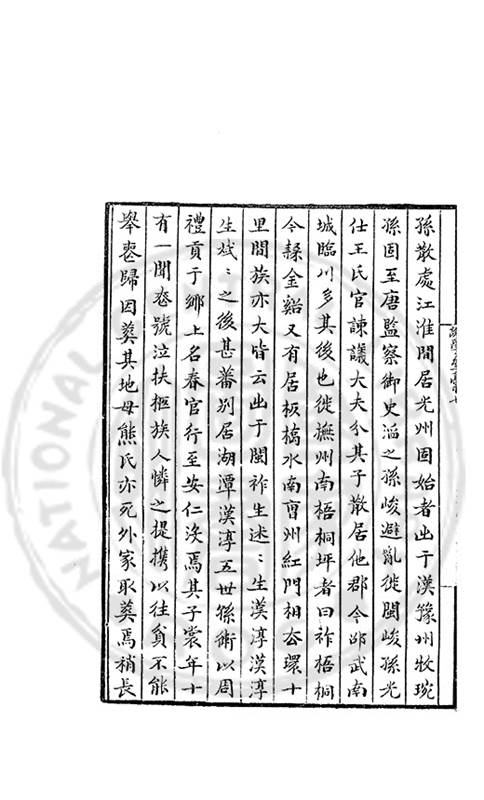 孫散處江淮間居光州固始者出于漢豫州牧琬
孫固至唐監察御史滔之孫峻避亂徙閩峻孫光
仕王氏官諫議大夫分其子散居他郡今邵武南
城臨川多其後也徙撫州南梧桐坪者曰祚梧桐
今隸金谿又有居板橋水南曹州紅門相去環十
里間族亦大皆云出于閩祚生述:生漢淳漢淳
生斌:之後甚蕃别居湖潭漢淳五世孫術以周
禮貢于鄉上名春官行至安仁没焉其子裳年十
有一聞喪號泣扶柩族人憐之提攜以往貧不能
舉喪歸因葬其地母熊氏亦死外家取葬焉稍長
NATIONAL